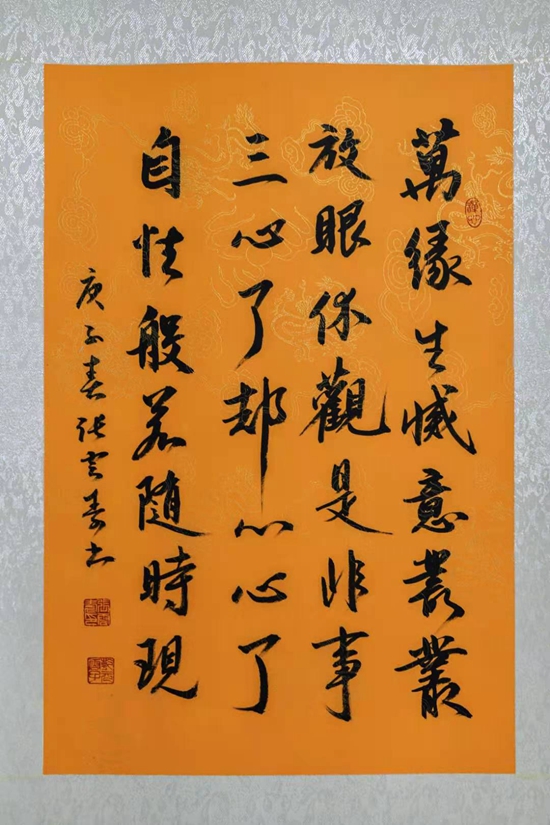 萬緣生滅意叢叢
放眼休觀是非事
三心了却心心了
自性般若隨時現
庚子春张雲书